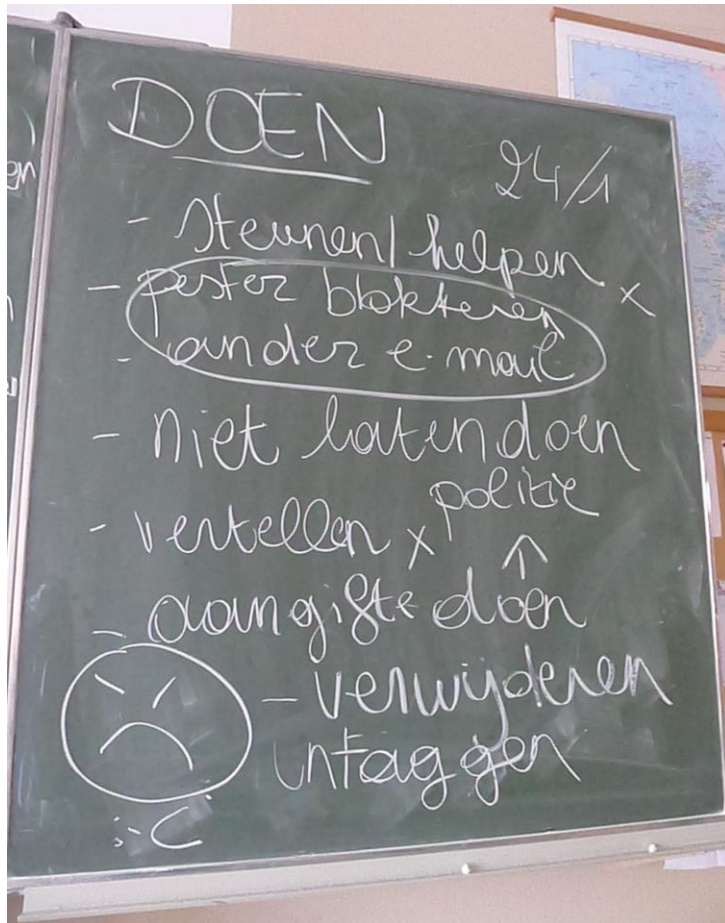 DOEN
24/1
- steunen/helpen x
- pester blokkeren
- ander e-mail
- niet laten doen
- vertellen x politie
↑
- aangifte doen
- verwijderen
untaggen
:-(
en